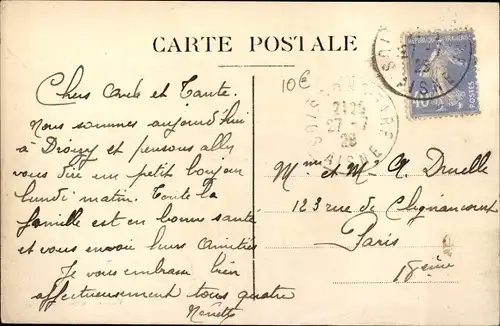 CARTE POSTALE
10€
Chers Oncle et Tante.
Nous sommes aujourd'hui
à Drouy et pensons aller
vous dire un petit bonjour
lundi matin. Toute la
famille est en bonne santé
et vous envoie leurs amitiés
Je vous embrasse bien
affectueusement tous quatre
Nénette
SOISSONS GARE
21 25
27 - 7
28
AISNE
AISNE
POSTES
Mme et Mr A. Druelle
123 rue de Clignancourt
Paris
18ème